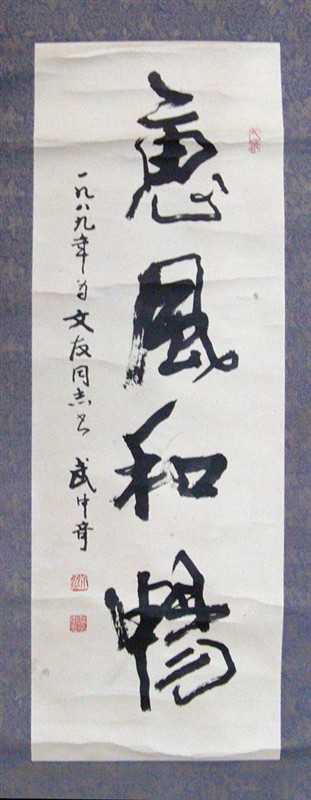 惠風和暢
一九八九年为文友同志书 武中奇